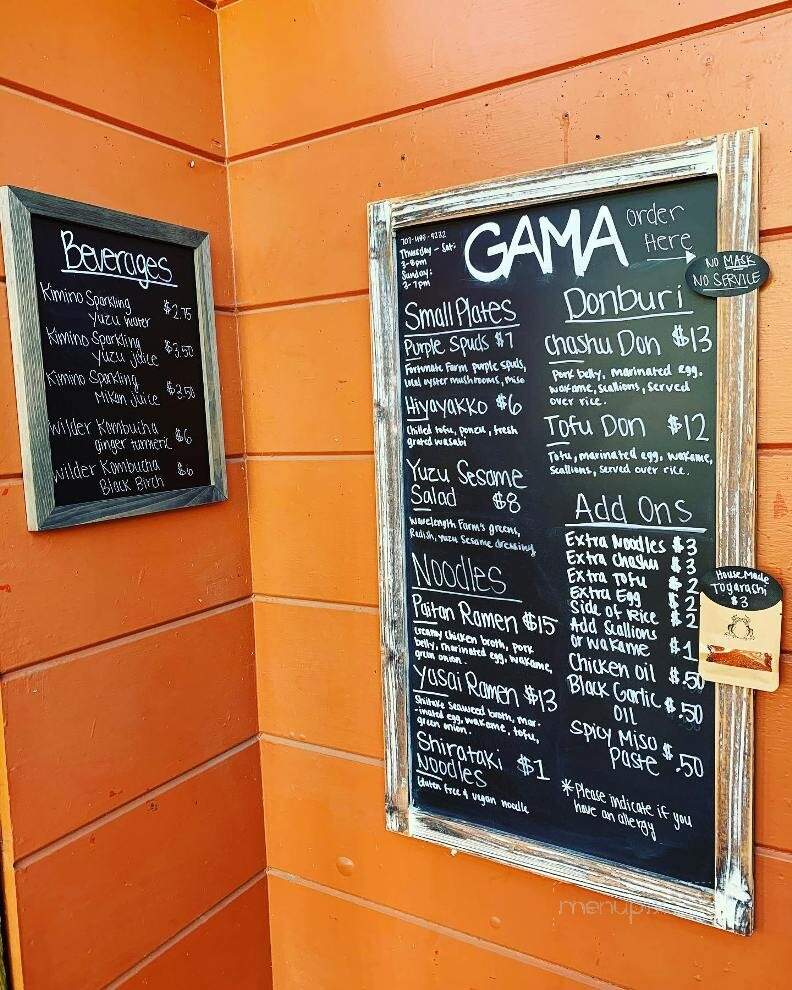 Beverages
Kimino Sparkling
yuzu water $2.75
Kimino Sparkling
yuzu juice $3.50
Kimino Sparkling
Mikan Juice $3.50
Wilder Kombucha
ginger turmeric $6
Wilder Kombucha
Black Birch $6
Thursday - Sat:
3-8pm
Sunday:
3-7pm
GAMA
Order
Here
NO MASK
NO SERVICE
Small Plates
Purple Spuds $7
Fortunate Farm purple spuds,
local oyster mushrooms, miso
Hiyayakko $6
Chilled tofu, ponzu, fresh
grated wasabi
Yuzu Sesame
Salad $8
Wavelength Farm's greens,
Radish, yuzu Sesame dressing
Noodles
Paitan Ramen $15
Creamy chicken broth, pork
belly, marinated egg, wakame,
green onion.
Yasai Ramen $13
Shiitake seaweed broth, mar-
-inated egg, wakame, tofu,
green onion.
Shirataki $1
Noodles
Gluten free & vegan noodle
Donburi
Chashu Don $13
Pork belly, marinated egg.
wakame, scallions, served
over rice.
Tofu Don $12
Tofu, marinated egg, wakame,
Scallions, served over rice.
Add Ons
Extra Noodles $3
Extra Chashu $3
Extra Tofu $2
Extra Egg $2
Side of Rice $2
Add Scallions
or wakame $1
Chicken oil $.50
Black Garlic
OIL $.50
Spicy Miso
Paste $.50
*Please indicate if you
have an allergy
House Made
Togarashi
$3